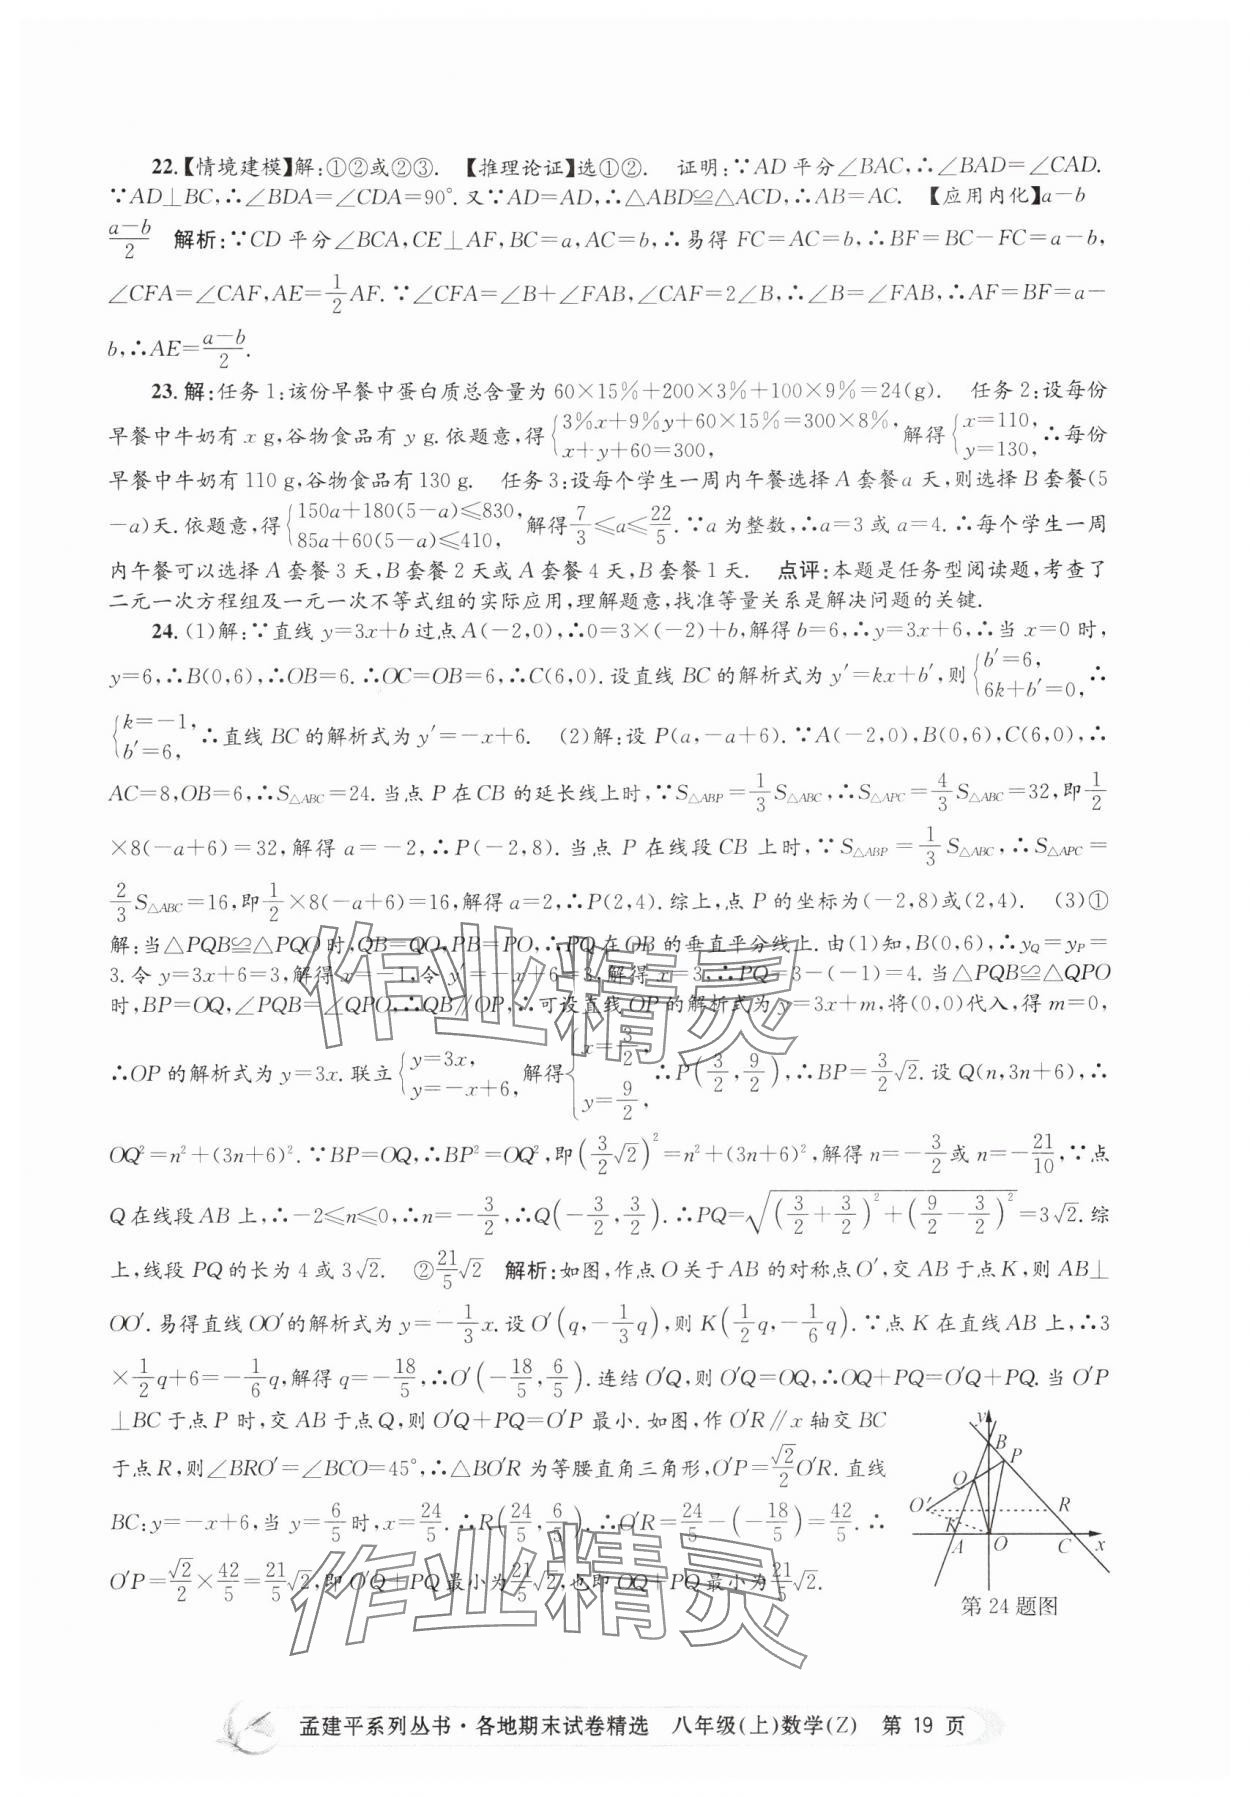 22.【情境建模】解:①②或②③. 【推理论证】选①②. 证明:∵AD平分∠BAC,∴∠BAD=∠CAD.
∵AD⊥BC,∴∠BDA=∠CDA=90°.又∵AD=AD,∴△ABD≌△ACD,∴AB=AC. 【应用内化】a-b
\frac{a-b}{2} 解析:∵CD平分∠BCA,CE⊥AF,BC=a,AC=b,∴易得FC=AC=b,∴BF=BC-FC=a-b,
∠CFA=∠CAF,AE=\frac{1}{2}AF.∵∠CFA=∠B+∠FAB,∠CAF=2∠B,∴∠B=∠FAB,∴AF=BF=a-
b,∴AE=\frac{a-b}{2}.
23.解:任务1:该份早餐中蛋白质总含量为60×15%+200×3%+100×9%=24(g). 任务2:设每份
早餐中牛奶有x g,谷物食品有y g.依题意,得{3%x+9%y+60×15%=300×8%, x+y+60=300, 解得{x=110, y=130, ∴每份
早餐中牛奶有110 g,谷物食品有130 g. 任务3:设每个学生一周内午餐选择A套餐a天,则选择B套餐(5
-a)天.依题意,得{150a+180(5-a)≤830, 85a+60(5-a)≤410, 解得\frac{7}{3}≤a≤\frac{22}{5}.∵a为整数,∴a=3或a=4.∴每个学生一周
内午餐可以选择A套餐3天,B套餐2天或A套餐4天,B套餐1天. 点评:本题是任务型阅读题,考查了
二元一次方程组及一元一次不等式组的实际应用,理解题意,找准等量关系是解决问题的关键.
24.(1)解:∵直线y=3x+b过点A(-2,0),∴0=3×(-2)+b,解得b=6,∴y=3x+6,∴当x=0时,
y=6,∴B(0,6),∴OB=6.∴OC=OB=6,∴C(6,0).设直线BC的解析式为y′=kx+b′,则{b′=6, 6k+b′=0, ∴
{k=-1, b′=6, ∴直线BC的解析式为y′=-x+6. (2)解:设P(a,-a+6).∵A(-2,0),B(0,6),C(6,0),∴
AC=8,OB=6,∴S△ABC=24.当点P在CB的延长线上时,∵S△ABP=\frac{1}{3}S△ABC,∴S△APC=\frac{4}{3}S△ABC=32,即\frac{1}{2}
×8(-a+6)=32,解得a=-2,∴P(-2,8).当点P在线段CB上时,∵S△ABP=\frac{1}{3}S△ABC,∴S△APC=
\frac{2}{3}S△ABC=16,即\frac{1}{2}×8(-a+6)=16,解得a=2,∴P(2,4).综上,点P的坐标为(-2,8)或(2,4). (3)①
解:当△PQB≌△PQO时,QB=QO,PB=PO,∴PQ在OB的垂直平分线上.由(1)知,B(0,6),∴y_Q=y_P=
3.令y=3x+6=3,解得x=-1,令y′=-x+6=3,解得x=3,∴PQ=3-(-1)=4.当△PQB≌△QPO
时,BP=OQ,∠PQB=∠QPO,∴QB∥OP,∴可设直线OP的解析式为y=3x+m,将(0,0)代入,得m=0,
∴OP的解析式为y=3x.联立{y=3x, y=-x+6, 解得{x=\frac{3}{2}, y=\frac{9}{2}, ∴P(\frac{3}{2},\frac{9}{2}),∴BP=\frac{3}{2}√2.设Q(n,3n+6),∴
OQ²=n²+(3n+6)².∵BP=OQ,∴BP²=OQ²,即(\frac{3}{2}√2)²=n²+(3n+6)²,解得n=-\frac{3}{2}或n=-\frac{21}{10},∵点
Q在线段AB上,∴-2≤n≤0,∴n=-\frac{3}{2},∴Q(-\frac{3}{2},\frac{3}{2}).∴PQ=√((\frac{3}{2}+\frac{3}{2})²+(\frac{9}{2}-\frac{3}{2})²)=3√2.综
上,线段PQ的长为4或3√2. ②\frac{21}{5}√2 解析:如图,作点O关于AB的对称点O′,交AB于点K,则AB⊥
OO′.易得直线OO′的解析式为y=-\frac{1}{3}x.设O′(q,-\frac{1}{3}q),则K(\frac{1}{2}q,-\frac{1}{6}q).∵点K在直线AB上,∴3
×\frac{1}{2}q+6=-\frac{1}{6}q,解得q=-\frac{18}{5},∴O′(-\frac{18}{5},\frac{6}{5}).连结O′Q,则O′Q=OQ,∴OQ+PQ=O′Q+PQ.当O′P
⊥BC于点P时,交AB于点Q,则O′Q+PQ=O′P最小.如图,作O′R∥x轴交BC
于点R,则∠BRO′=∠BCO=45°,∴△BO′R为等腰直角三角形,O′P=\frac{√2}{2}O′R.直线
BC:y=-x+6,当y=\frac{6}{5}时,x=\frac{24}{5}.∴R(\frac{24}{5},\frac{6}{5}).∴O′R=\frac{24}{5}-(-\frac{18}{5})=\frac{42}{5}.∴
O′P=\frac{√2}{2}×\frac{42}{5}=\frac{21}{5}√2,即O′Q+PQ最小为\frac{21}{5}√2,也即OQ+PQ最小为\frac{21}{5}√2.
y
B
P
Q
O′
R
K
A
O
C
x
第24题图
作业精灵
作业精灵
孟建平系列丛书·各地期末试卷精选 八年级(上)数学(Z) 第19页